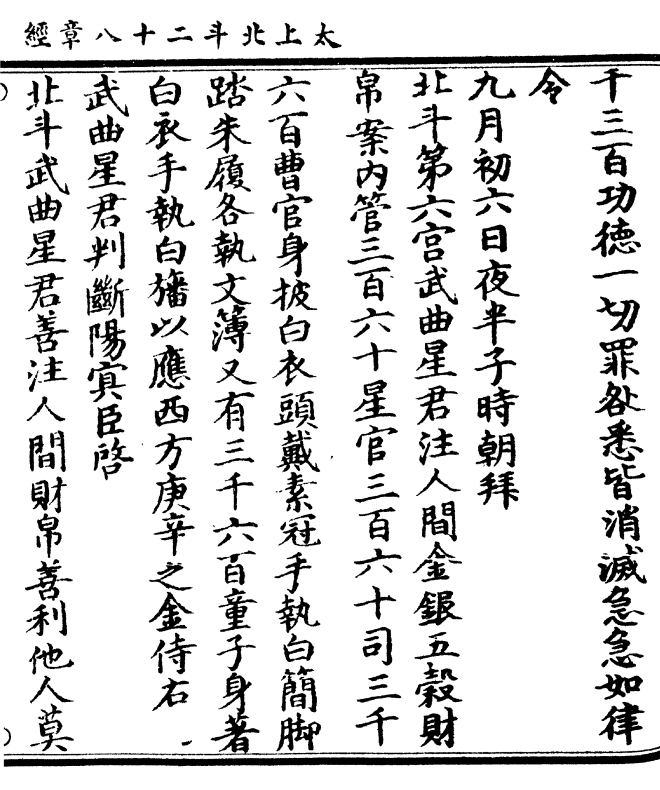 太上北斗二十八章經
千三百功德一切罪咎悉皆消滅急急如律
令
九月初六日夜半子時朝拜
北斗第六宮武曲星君注人間金銀五穀財
帛案内管三百六十星官三百六十司三千
六百曹官身披白衣頭戴素冠手執白簡脚
踏朱履各執文簿又有三千六百童子身著
白衣手執白旛以應西方庚辛之金侍右
武曲星君判斷陽㝠臣啓
北斗武曲星君善注人間財帛善利他人莫